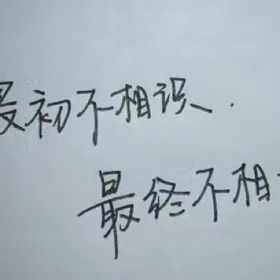 最初不相识.
最终不相